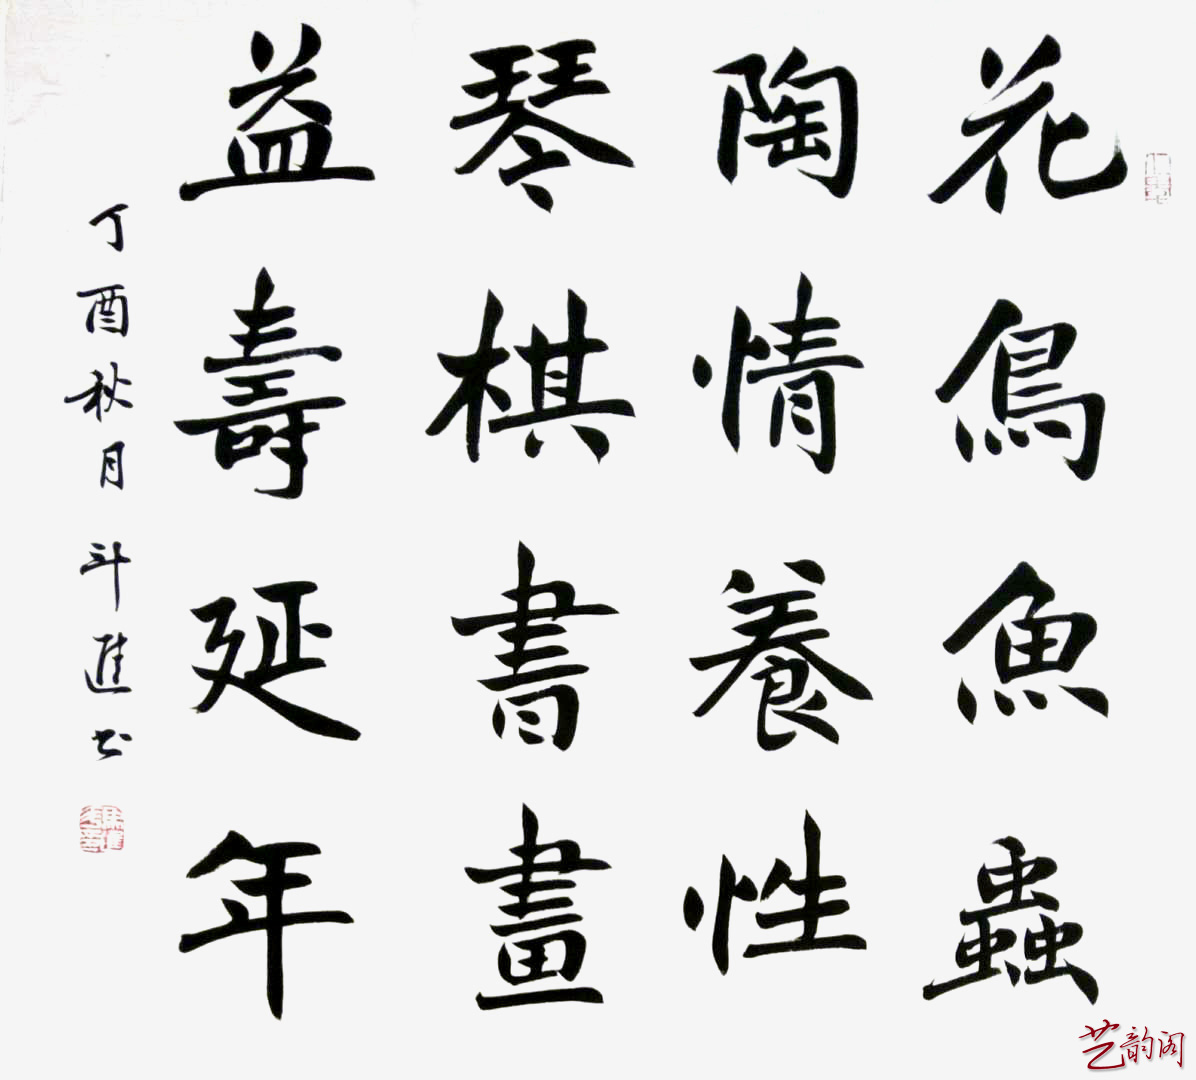 花鳥魚蟲
陶情養性
琴棋書畫
益壽延年
丁酉秋月 斗進书
艺韵阁